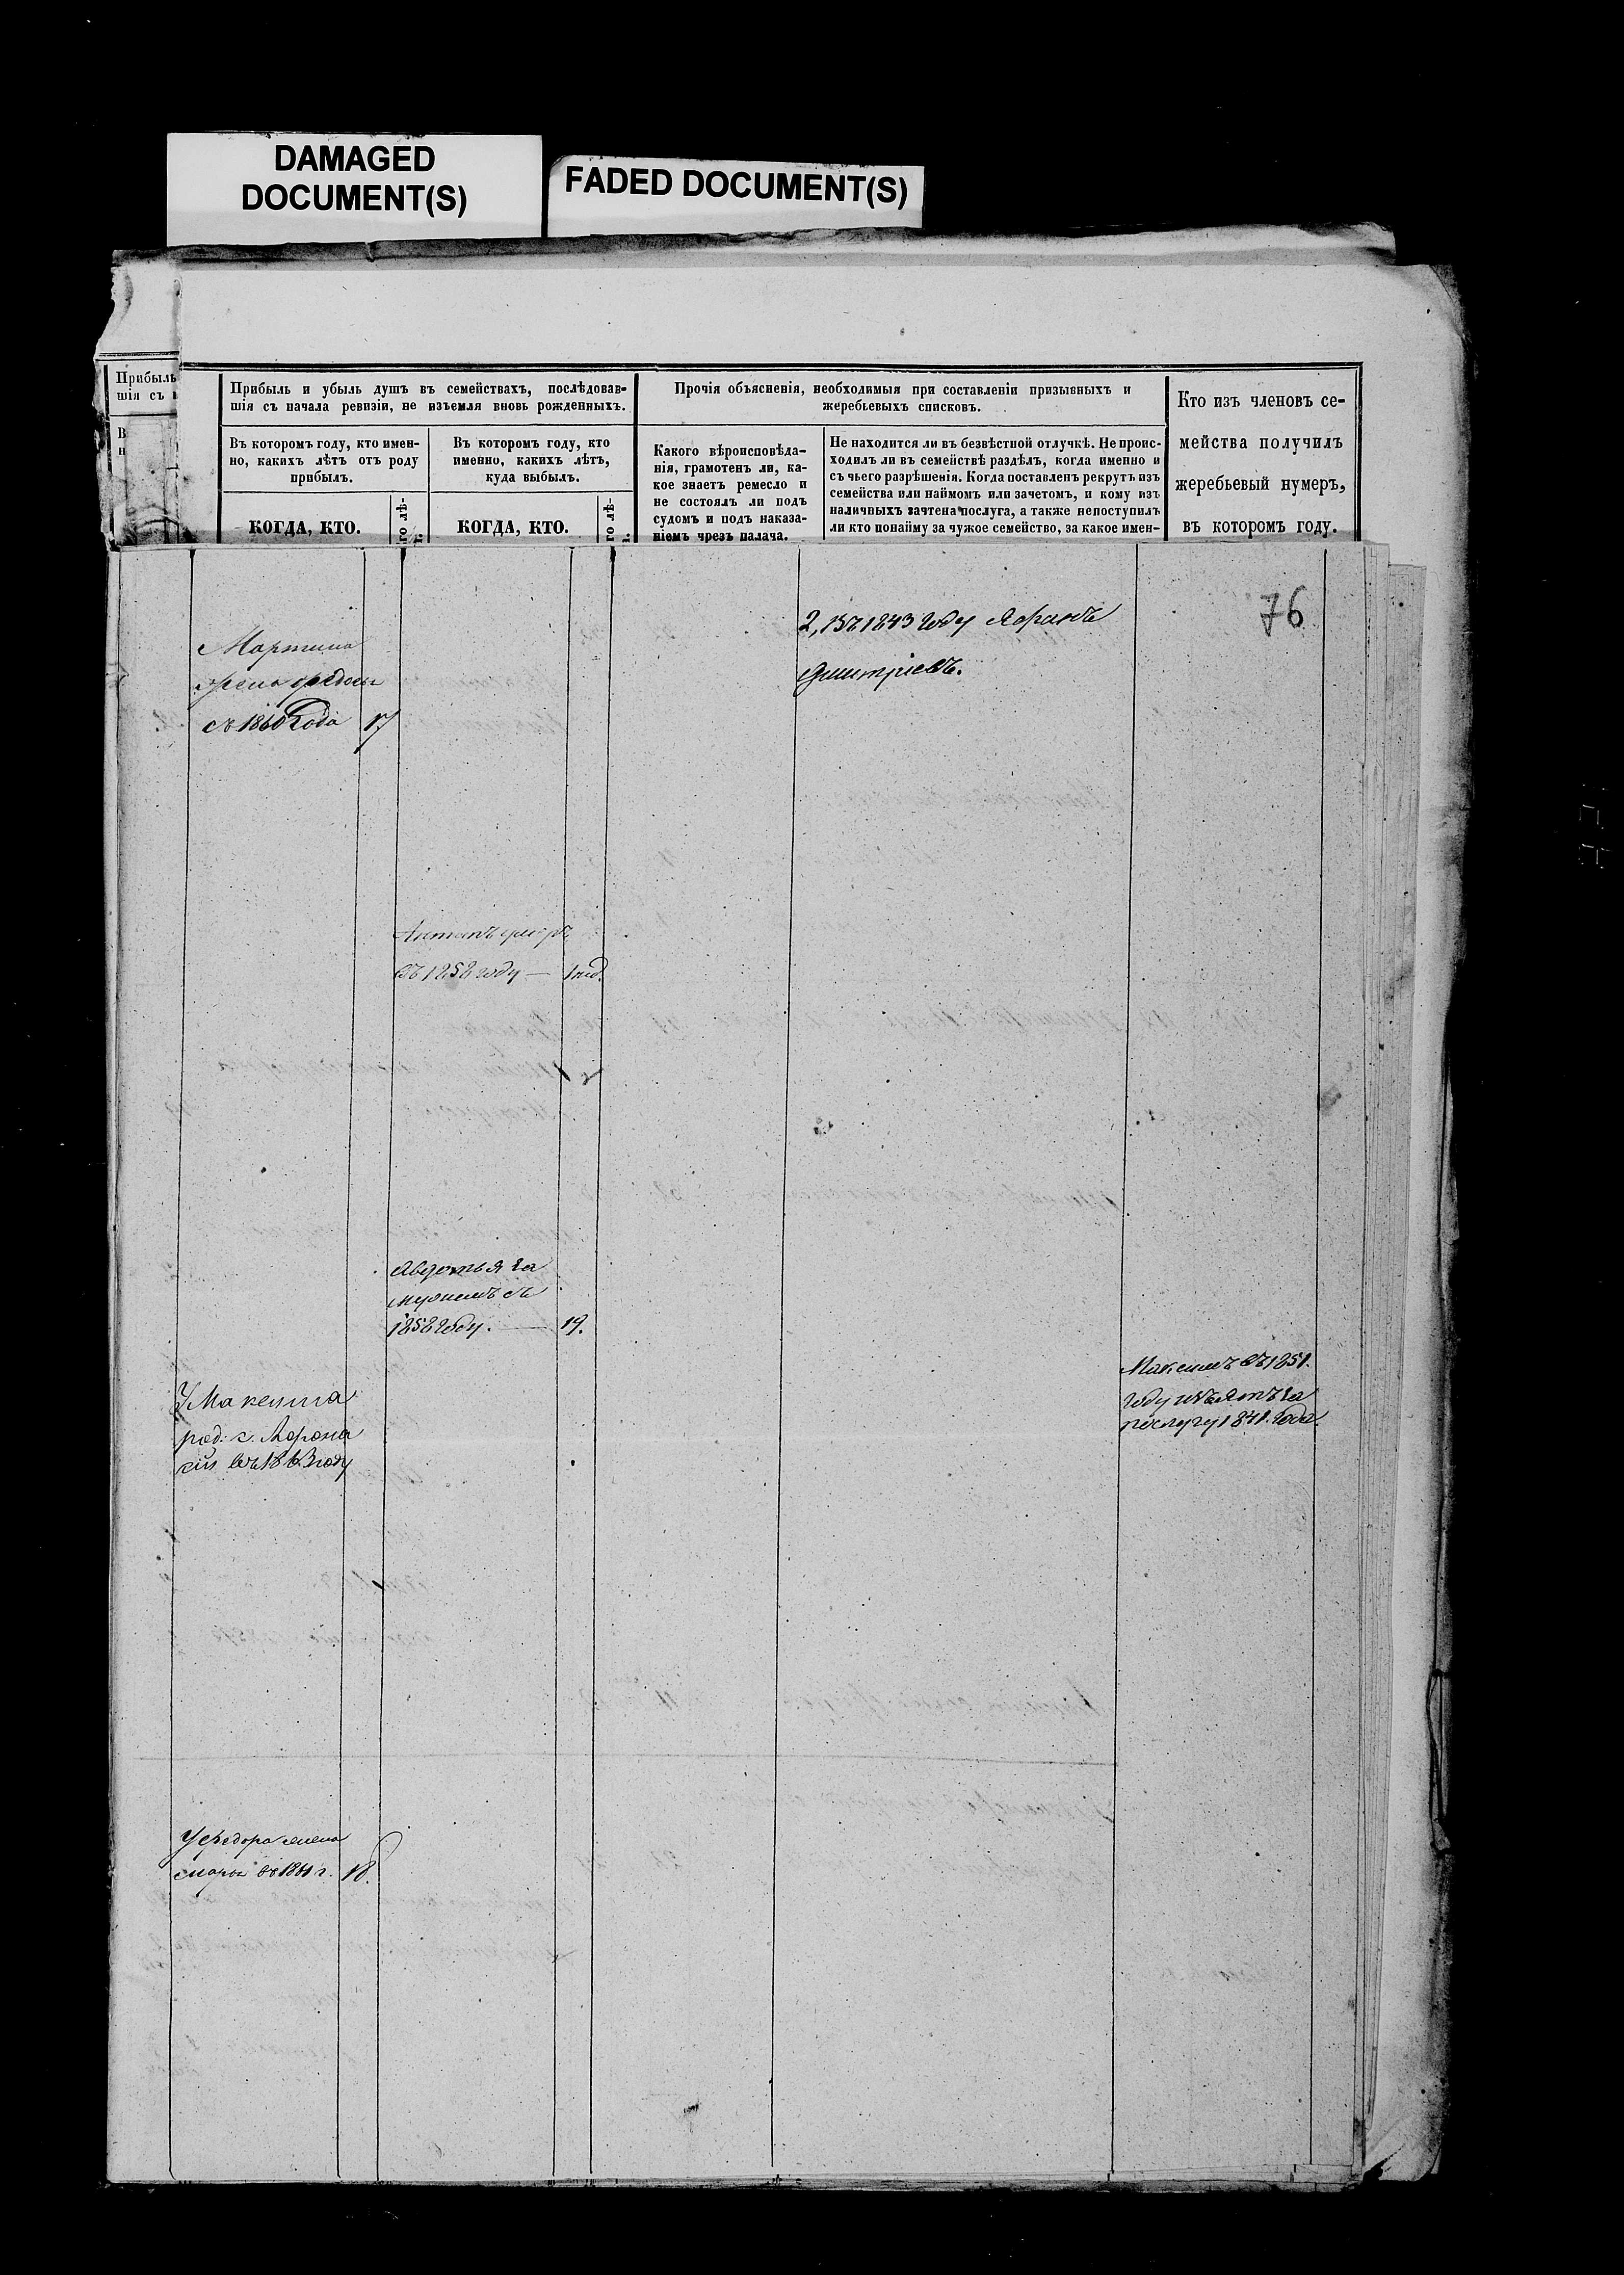 DAMAGED
DOCUMENT(S)
FADED DOCUMENT(S)
Прибыль
шія съ
В
н
Прибыль и убыль душъ въ семействахъ, послѣдовав-
шія съ начала ревизіи, не изъемля вновь рожденныхъ.
Въ которомъ году, кто имен-
но, какихъ лѣтъ отъ роду
прибылъ.
КОГДА, КТО.
го лѣ-
Въ которомъ году, кто
именно, какихъ лѣтъ,
куда выбылъ.
КОГДА, КТО.
го лѣ-
Прочія объясненія, необходимыя при составленіи призывныхъ и
жеребьевыхъ списковъ.
Какого вѣроисповѣда-
нія, грамотенъ ли, ка-
кое знаетъ ремесло и
не состоялъ ли подъ
судомъ и подъ наказа-
ніемъ чрезъ палача.
Не находится ли въ безвѣстной отлучкѣ. Не проис-
ходилъ ли въ семействѣ раздѣлъ, когда именно и
съ чьего разрѣшенія. Когда поставленъ рекрутъ изъ
семейства или наймомъ или зачетомъ, и кому изъ
наличныхъ зачтена послуга, а также непоступилъ
ли кто понайму за чужое семейство, за какое имен-
Кто изъ членовъ се-
мейства получилъ
жеребьевый нумеръ,
въ которомъ году.
76
2, Въ 1843 году
Дмитріевъ.
Мартина
жена Федосья
съ 1860 года 17
Антонъ
въ 1858 году — 1 нед.
Авдотья за
мужемъ съ
1858 году. — 19.
Максимъ въ 1851.
году изъятъ за
послугу 1841. года.
У Максима
род: с.
въ 1863 году
У Федора жена
въ 1861 г. 18.